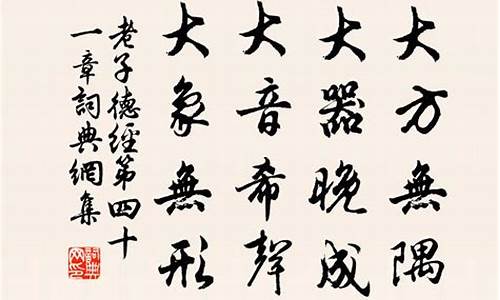 大方無隅
大器晚成
大音希聲
大象無形
老子德經第四十
一章詞典網集
詞典網印